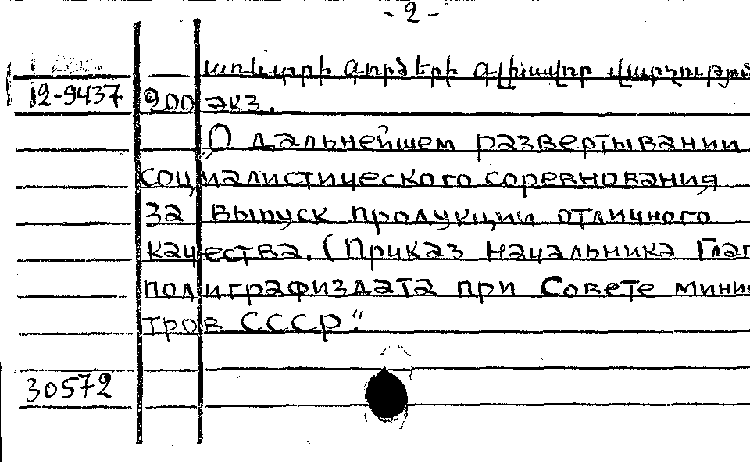 - 2 -
առևտրի գործերի գլխավոր վարչությու
12-9437 900 экз.
„О дальнейшем развертывании
социалистического соревнования
за выпуск продукции отличного
качества. (Приказ начальника Глав
полиграфиздата при Совете минис
тров СССР"
30572